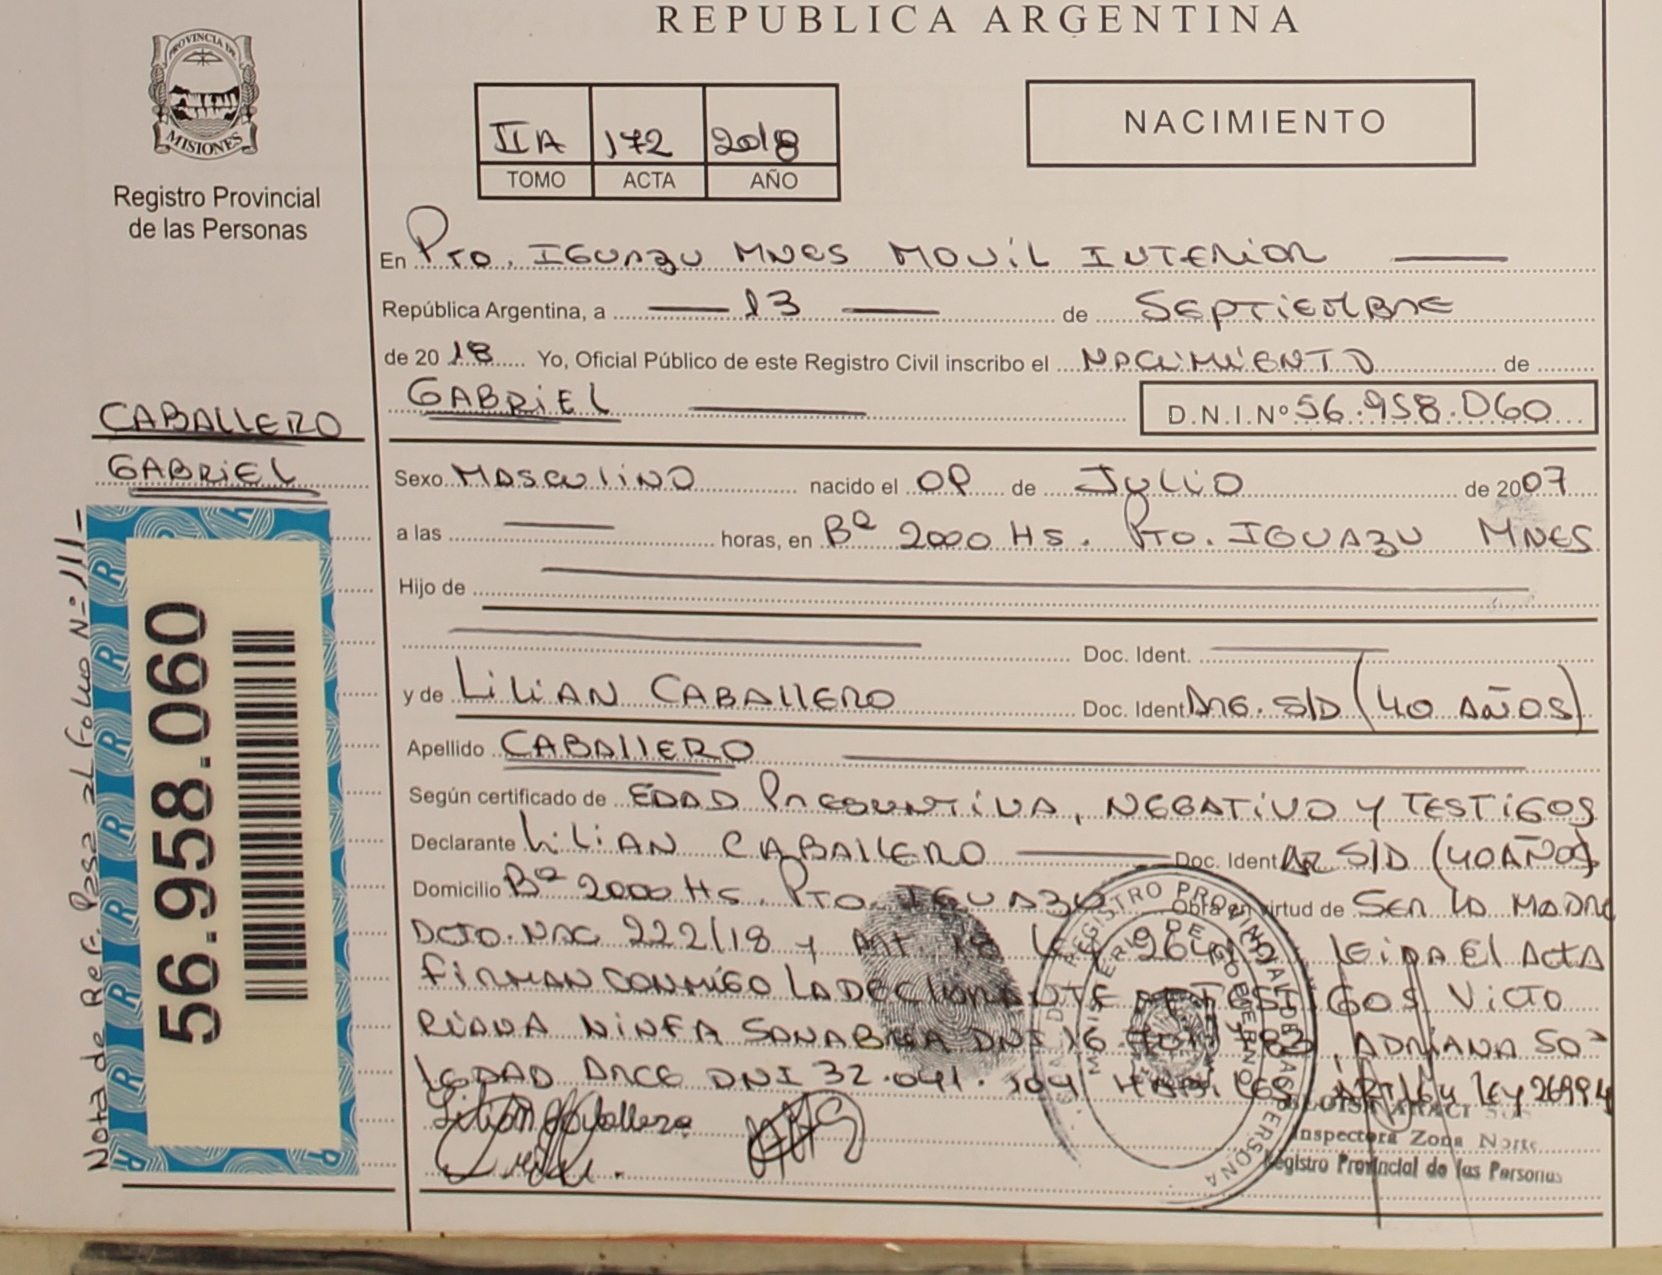 REPUBLICA ARGENTINA
PROVINCIA DE
MISIONES
Registro Provincial
de las Personas
IIA 172 2018
TOMO ACTA AÑO
NACIMIENTO
En Pto. IGUAZU MNES MOVIL INTERIOR
República Argentina, a 13 de SEPTIEMBRE
de 2018 Yo, Oficial Público de este Registro Civil inscribo el NACIMIENTO de
GABRIEL D.N.I.Nº 56.958.060
CABALLERO
GABRIEL
Sexo MASCULINO nacido el de JULIO de 2007
a las horas, en Bº 2000 HS. PTO. IGUAZU MNES
Hijo de
Doc. Ident.
y de LILIAN CABALLERO Doc. Ident ARG. S/D (40 AÑOS)
Apellido CABALLERO
Según certificado de EDAD PRESUNTIVA, NEGATIVO Y TESTIGOS
Declarante LILIAN CABALLERO Doc. Ident AR S/D (40 AÑOS)
Domicilio Bº 2000 HS. PTO. IGUAZU Obra en virtud de SER LA MADRE
DCTO. NAC 222/18 y ART. LEY LEIDA EL ACTA
FIRMAN CONMIGO LA DECLARANTE TESTIGOS VICTO
RIANA NINFA SANABRIA DNI 16. 783, ADRIANA SO
LEDAD ARCE DNI 32.041.104 HABILES ART 164 LEY 26994
Lilian Caballero
Inspectora Zona Norte
Registro Provincial de las Personas
REGISTRO PROVINCIAL DE LAS PERSONAS
MINISTERIO DE GOBIERNO
56.958.060
Nota de Ref. Pasa al Folio Nº 111-